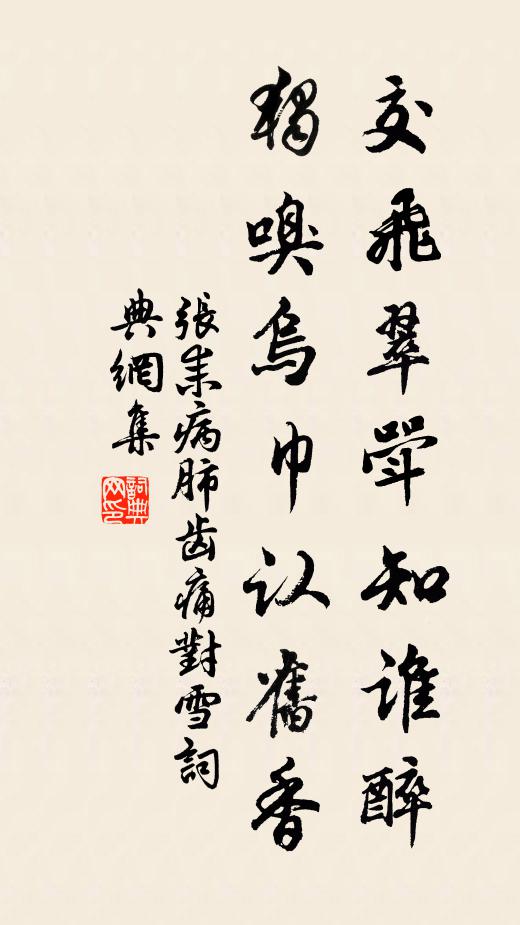 交飛翠斝知誰醉
獨嗅烏巾认舊香
張耒病肺齿痛對雪詞
典網集
詞典网印